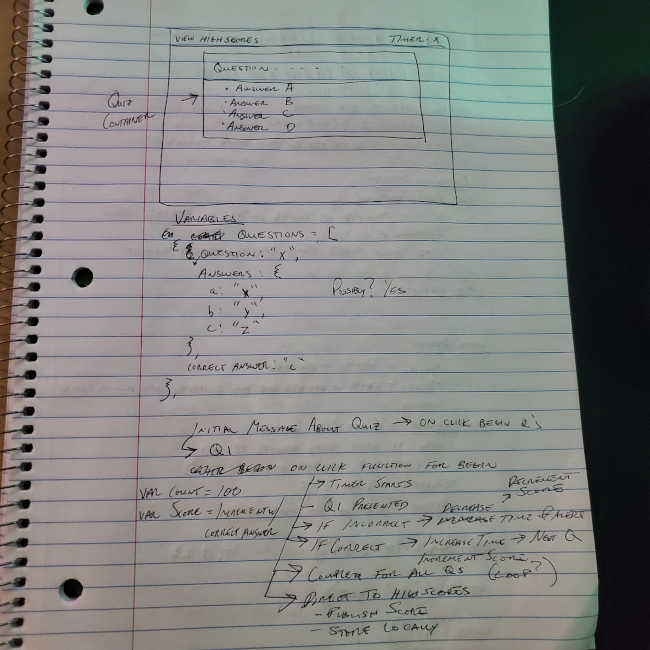 VIEW HIGHSCORES TIMER: X
QUESTION . . . .
• ANSWER A
• ANSWER B
• ANSWER C
• ANSWER D
QUIZ
CONTAINER
VARIABLES
QUESTIONS = [
{ QUESTION: "X",
ANSWERS: {
a: "X",
b: "Y",
c: "Z"
POSSIBLY? YES
},
CORRECT ANSWER: "C"
},
INITIAL MESSAGE ABOUT QUIZ → ON CLICK BEGIN Q'S
→ Q1
ON CLICK FUNCTION FOR BEGIN
VAR COUNT = 100
VAR SCORE = INCREMENT W/
CORRECT ANSWER
→ TIMER STARTS
- Q1 PRESENTED
→ IF INCORRECT → DECREASE TIME & ALERT
→ DECREMENT SCORE
→ IF CORRECT → INCREASE TIME → NEXT Q
INCREMENT SCORE
→ COMPLETE FOR ALL QS (LOOP?)
→ DIRECT TO HIGHSCORES
- PUBLISH SCORE
- STORE LOCALLY